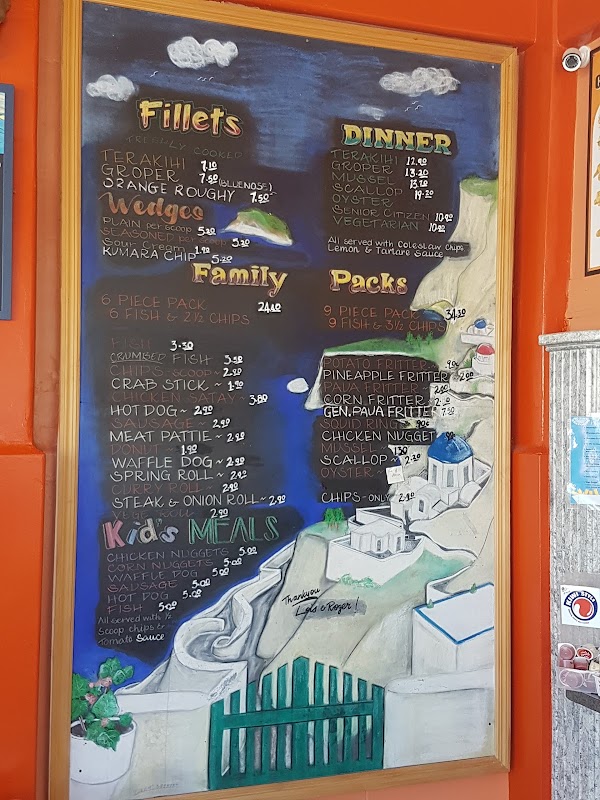 Fillets
FRESHLY COOKED
TERAKIHI 7.10
GROPER 7.50 (BLUENOSE)
ORANGE ROUGHY 7.50
Wedges
PLAIN per scoop 5.20
SEASONED per scoop 5.20
Sour Cream 1.90
KUMARA CHIP 5.20
DINNER
TERAKIHI 12.90
GROPER 13.20
MUSSEL
SCALLOP
OYSTER
SENIOR CITIZEN 10.90
VEGETARIAN
All served with Coleslaw Chips
Lemon & Tartare Sauce
Family Packs
6 PIECE PACK
6 FISH & 2½ CHIPS
9 PIECE PACK
9 FISH & 3½ CHIPS
FISH 3.30
CRUMBED FISH 5.50
CHIPS SCOOP ~ 2.90
CRAB STICK ~ 1.90
CHICKEN SATAY ~ 3.80
HOT DOG ~ 2.90
SAUSAGE ~ 2.90
MEAT PATTIE ~ 2.90
DONUT 1.90
WAFFLE DOG ~ 2.90
SPRING ROLL ~ 2.90
CURRY ROLL 2.90
STEAK & ONION ROLL ~ 2.90
2.90
POTATO FRITTER ~ 90¢
PINEAPPLE FRITTER ~ 2.00
PAUA FRITTER ~
CORN FRITTER
GEN. PAUA FRITTER 7.50
SQUID RING 90¢
CHICKEN NUGGET
MUSSEL 1.30
SCALLOP ~ 2.30
OYSTER
CHIPS - ONLY
Kid's MEALS
CHICKEN NUGGETS 5.00
CORN NUGGETS 5.00
WAFFLE DOG 5.00
SAUSAGE 5.00
HOT DOG 5.00
FISH 5.00
All served with ½
Scoop chips & 
Tomato Sauce
Thankyou
Lois & Roger!